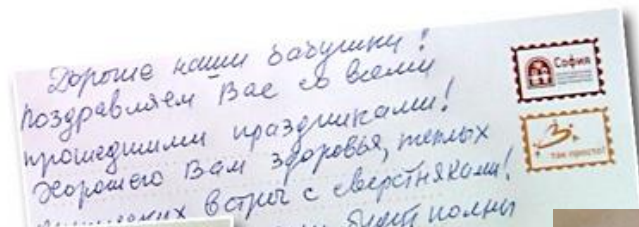 Дорогие наши бабушки!
Поздравляем Вас со всеми
прошедшими праздниками!
Хорошего Вам здоровья, теплых
встреч с сверстниками!
будут полны
София
так просто!